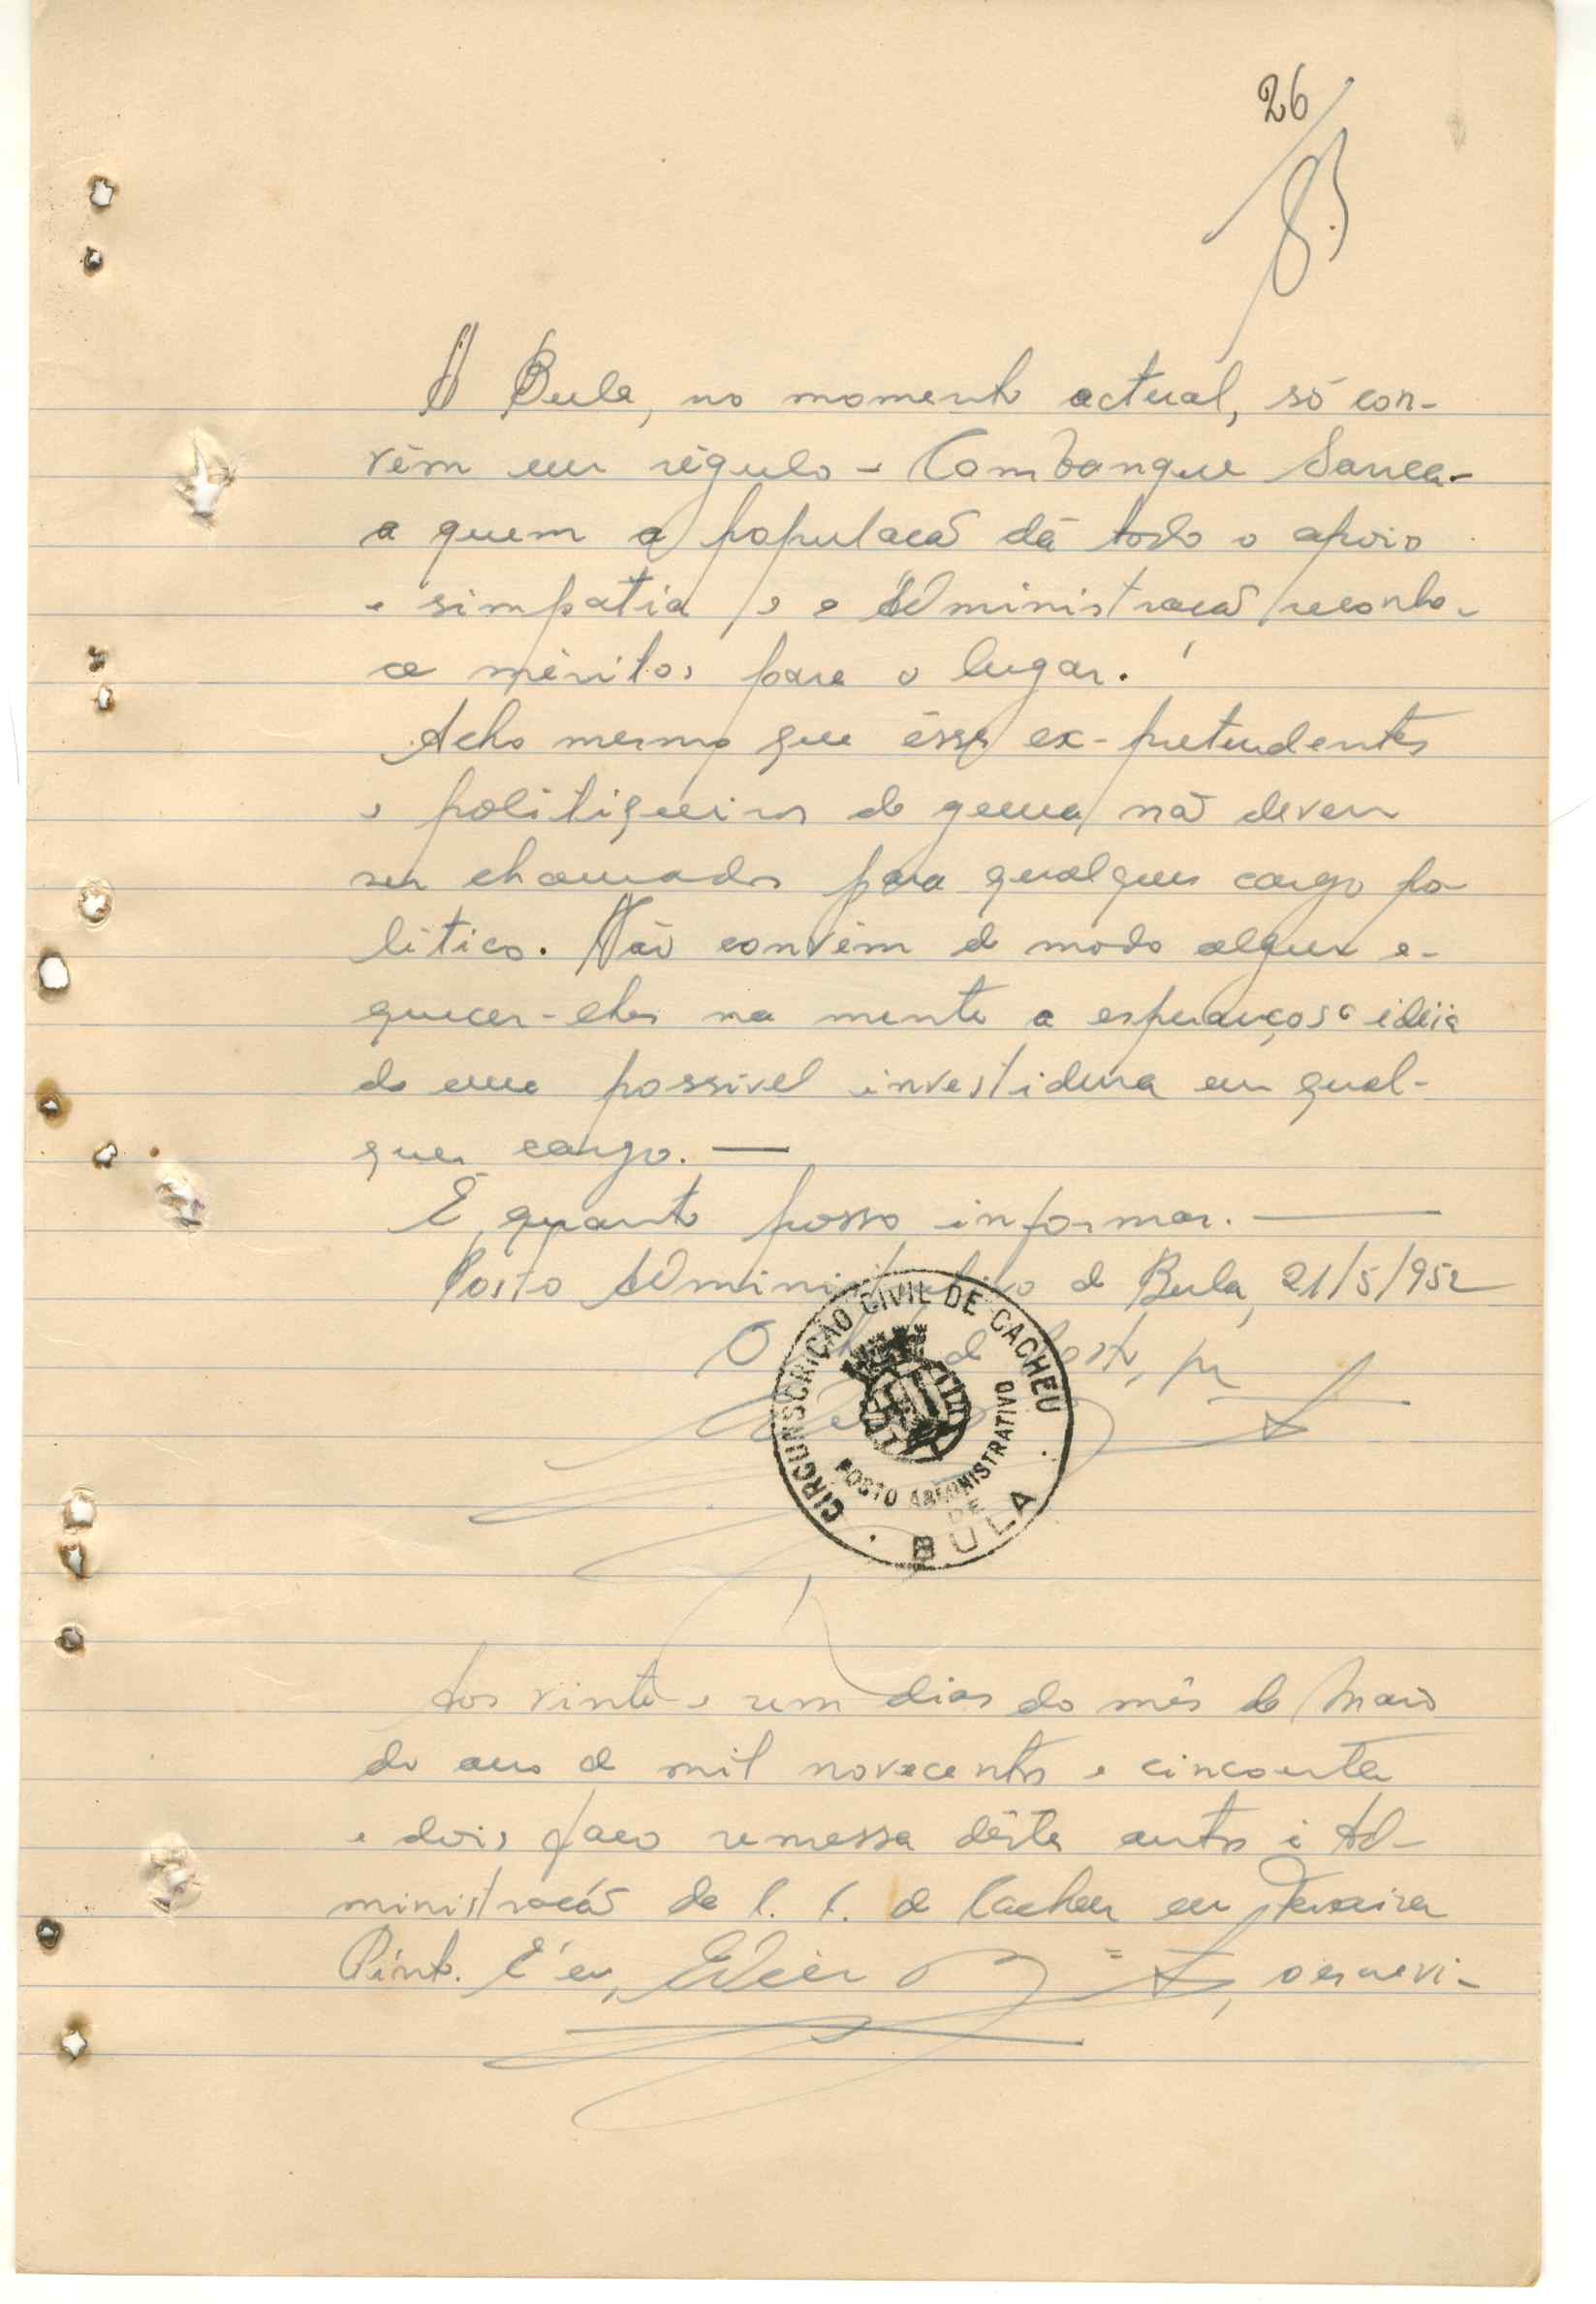 26
A Bula, no momento actual, só con-
vém um régulo - Combangue Sanca -
a quem a população dá todo o apoio
e simpatia, e a Administração reconhe-
ce méritos para o lugar.
Acho mesmo que êsses ex-pretendentes
e politiqueiros de gema, não devem
ser chamados para qualquer cargo po-
lítico. Não convém de modo algum a-
quecer-lhes na mente a esperançosa idéia
de uma possivel investidura em qual-
quer cargo. —
É quanto posso informar. —
Posto Administrativo de Bula, 21/5/952
O Chefe de Posto,
CIRCUNSCRIÇÃO CIVIL DE CACHEU
POSTO ADMINISTRATIVO
DE
BULA
Aos vinte e um dias do mês de Maio
do ano de mil novecentos e cincoenta
e dois, faço remessa dêstes autos à Ad-
ministração da C. C. de Cacheu em Teixeira
Pinto. E eu, o escrevi -